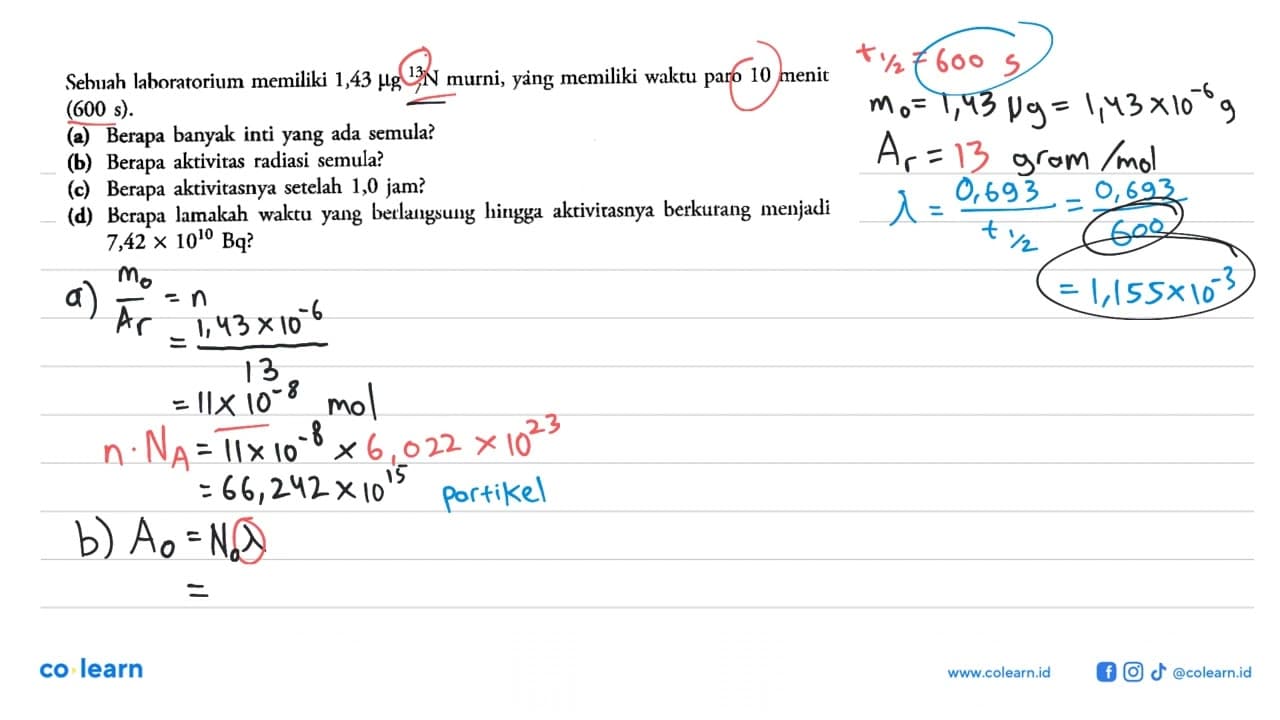 Sebuah laboratorium memiliki 1,43 μg ¹³₇N murni, yang memiliki waktu paro 10 menit
(600 s).
(a) Berapa banyak inti yang ada semula?
(b) Berapa aktivitas radiasi semula?
(c) Berapa aktivitasnya setelah 1,0 jam?
(d) Berapa lamakah waktu yang berlangsung hingga aktivitasnya berkurang menjadi
7,42 × 10¹⁰ Bq?
t 1/2 = 600 s
m₀ = 1,43 μg = 1,43 × 10⁻⁶ g
Ar = 13 gram/mol
λ = 0,693 / t 1/2 = 0,693 / 600
= 1,155 × 10⁻³
a) m₀ / Ar = n
= 1,43 × 10⁻⁶ / 13
= 11 × 10⁻⁸ mol
n · N_A = 11 × 10⁻⁸ × 6,022 × 10²³
= 66,242 × 10¹⁵ partikel
b) A₀ = N₀λ
=
co learn
www.colearn.id
@colearn.id